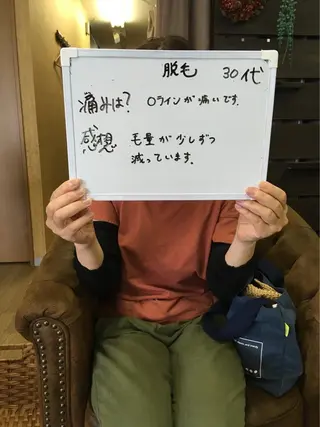 脱毛 30代
痛みは? Oラインが痛いです。
感想 毛量が少しずつ
減っています。